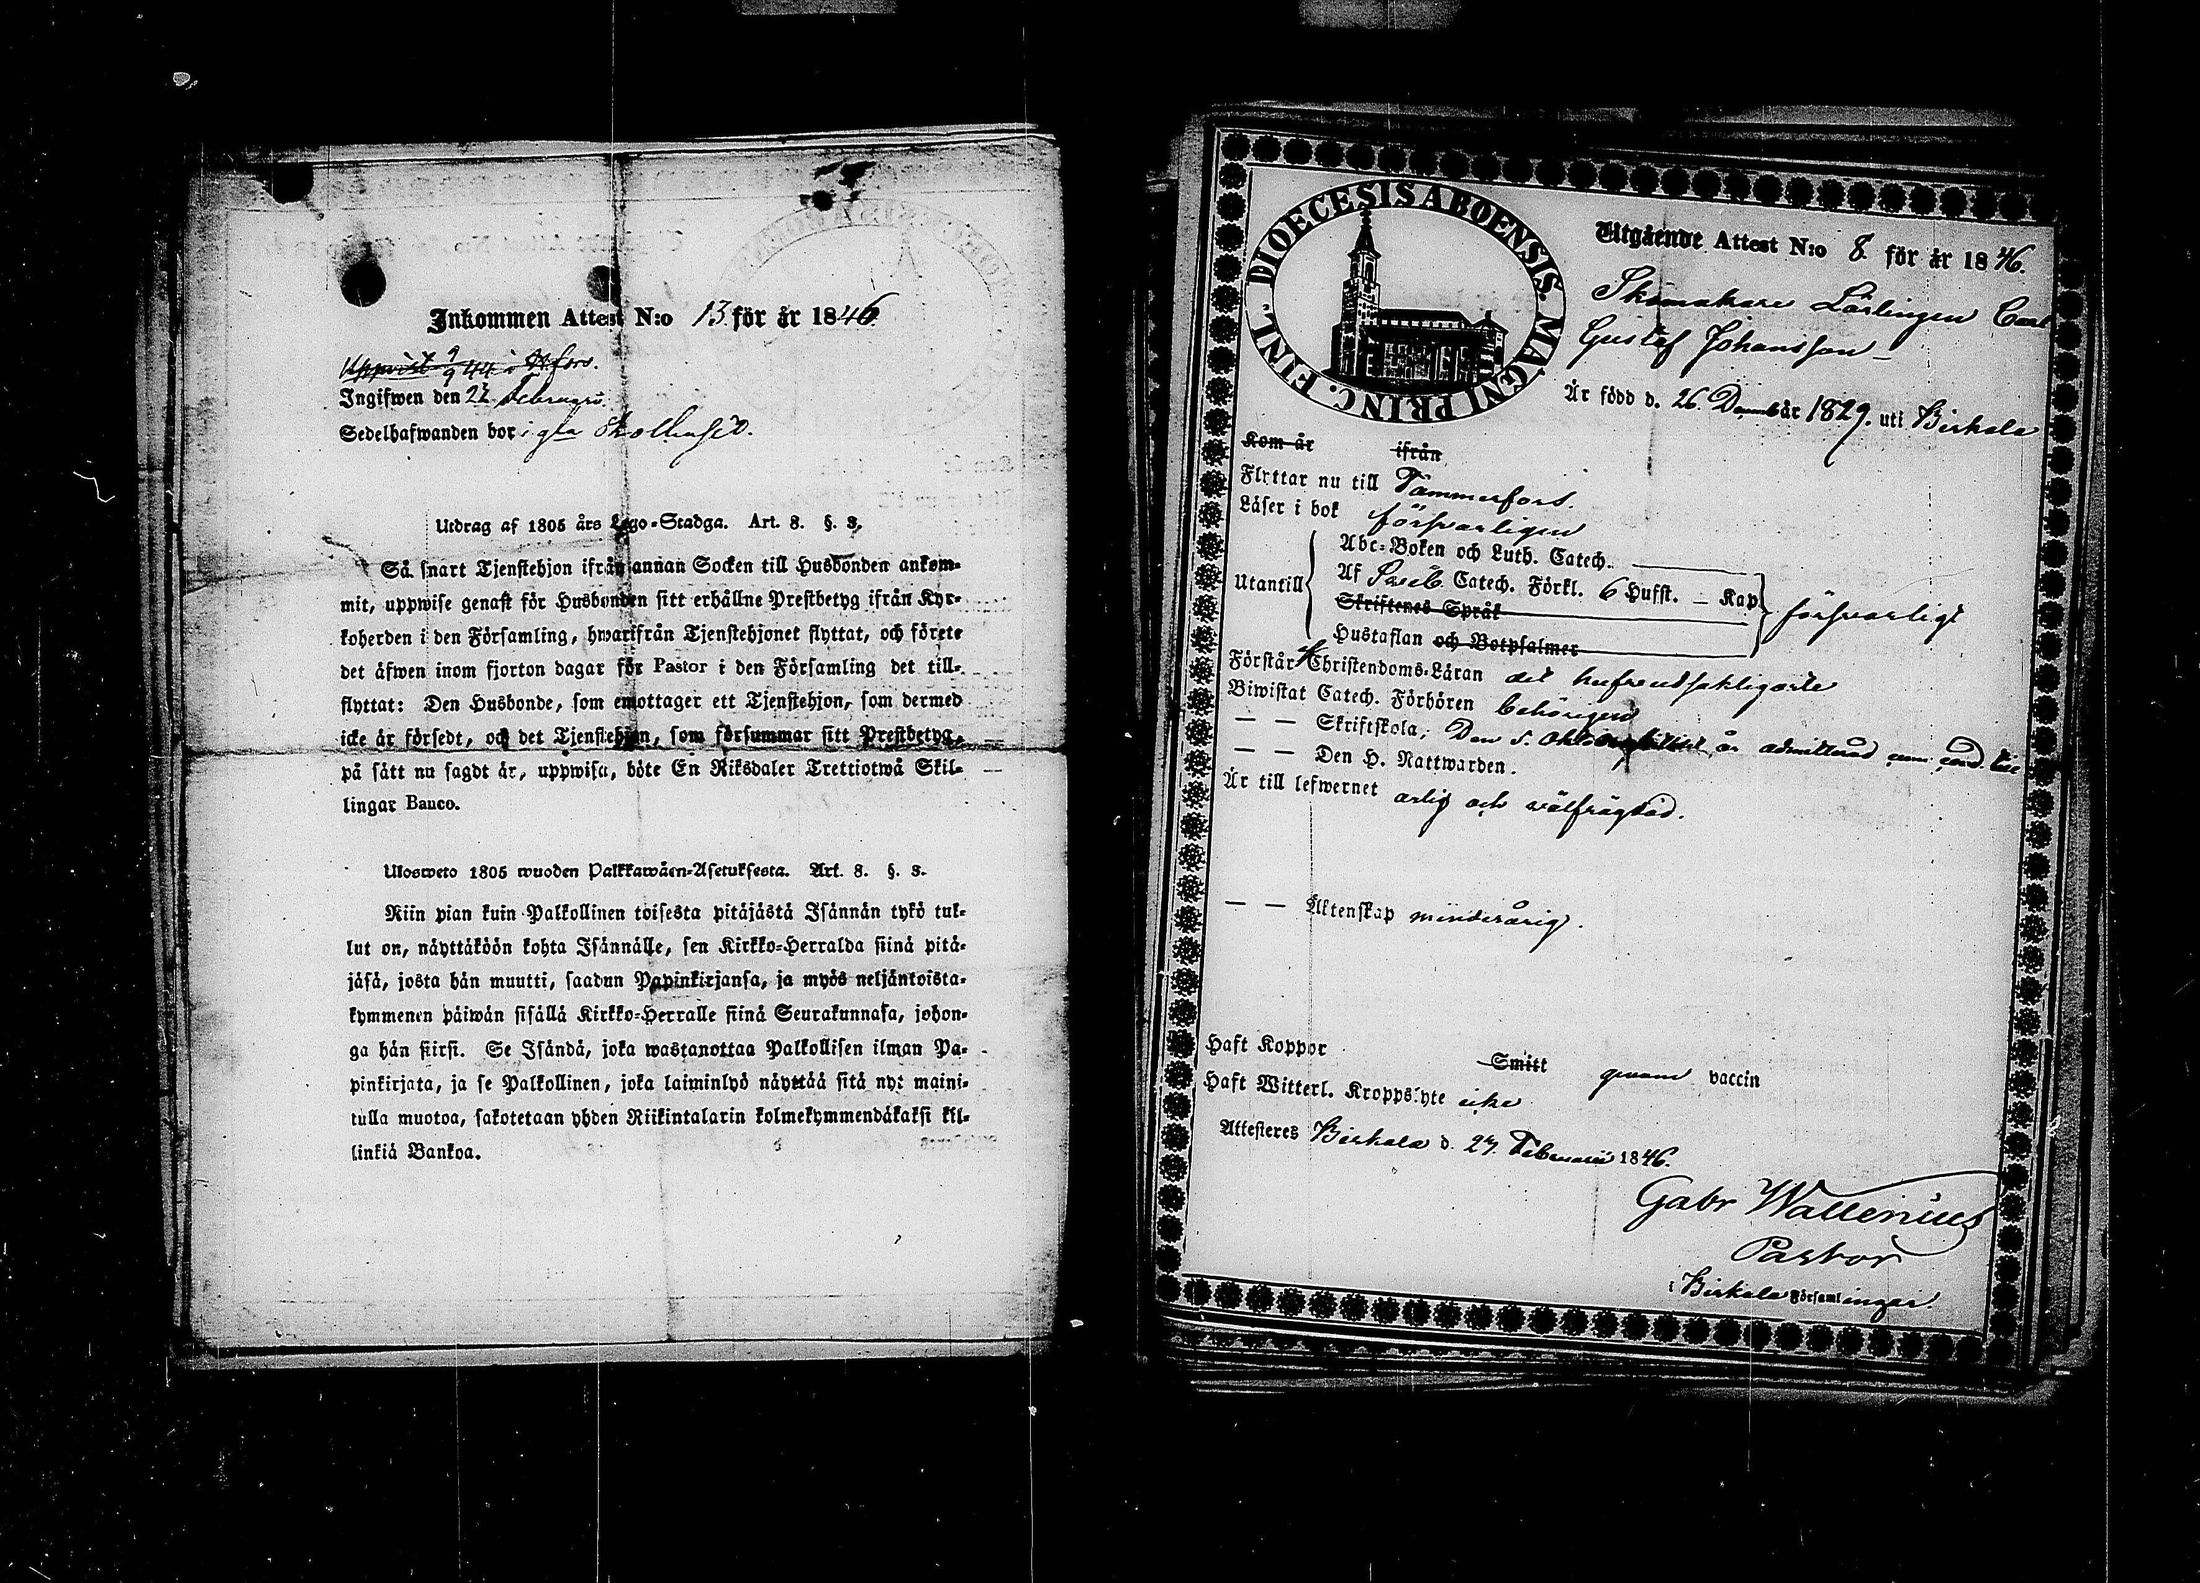 Inkommen Attest N:o 13 för år 1846.
Uppvist 9/9 44 i H.fors.
Ingifwen den 27 Februarii
Sedelhafwanden bor i gla
Utdrag af 1805 års Lego-Stadga. Art. 8. §. 3.
Så snart Tjenstehjon ifrån annan Socken till Husbonden ankom-
mit, uppwise genast för Husbonden sitt erhållne Prestbetyg ifrån Kyr-
koherden i den Församling, hwarifrån Tjenstehjonet flyttat, och förete
det äfwen inom fjorton dagar för Pastor i den Församling det till-
flyttat: Den Husbonde, som emottager ett Tjenstehjon, som dermed
icke är försedt, och det Tjenstehjon, som försummar sitt Prestbetyg,
på sätt nu sagdt är, uppwisa, böte En Riksdaler Trettiotwå Skil-
lingar Banco.
Ulosweto 1805 wuoden Palkkawäen-Asetuksesta. Art. 8. §. 3.
Niin pian kuin Palkollinen toisesta pitäjästä Isännän tykö tul-
lut on, näyttäköön kohta Isännälle, sen Kirkko-Herralda siinä pitä-
jäsä, josta hän muutti, saadun Papinkirjansa, ja myös neljäntoista-
kymmenen päiwän sisällä Kirkko-Herralle siinä Seurakunnasa, johon-
ga hän siirsi. Se Isändä, joka wastanottaa Palkollisen ilman Pa-
pinkirjata, ja se Palkollinen, joka laiminlyö näyttää sitä nyt maini-
tulla muotoa, sakotetaan yhden Riikintalarin kolmekymmendäkaksi kil-
linkiä Bankoa.
DIOECESIS ABOENSIS. MAGNI PRINC. FINL.
Utgående Attest N:o 8. för år 1846.
Skomakare Lärlingen Carl
Gustaf Johansson
Är född d. 26. Decemb år 1829. uti Birkala
Kom år ifrån
Flyttar nu till Tammerfors.
Läser i bok försvarligen
Utantill
Abc-Boken och Luth. Catech.
Af Sveb. Catech. Förkl. 6 Hufst. — Kap.
Skriftenes Språk
Hustaflan och Botpsalmer
försvarligt
Förstår Christendoms-Läran det hufvudsakligaste
Biwistat Catech. Förhören behörigen
— — Skriftskola, Den 5. är admitterad
— — Den H. Nattwarden.
Är till lefwernet ärlig och välfrägdad.
— — Äktenskap minderårig.
Haft Koppor Smitt genom vaccin
Haft Witterl. Kroppslyte icke
Attesteres Birkala d. 27. Februarii 1846.
Gabr Wallenius
Pastor
i Birkala Församlingar